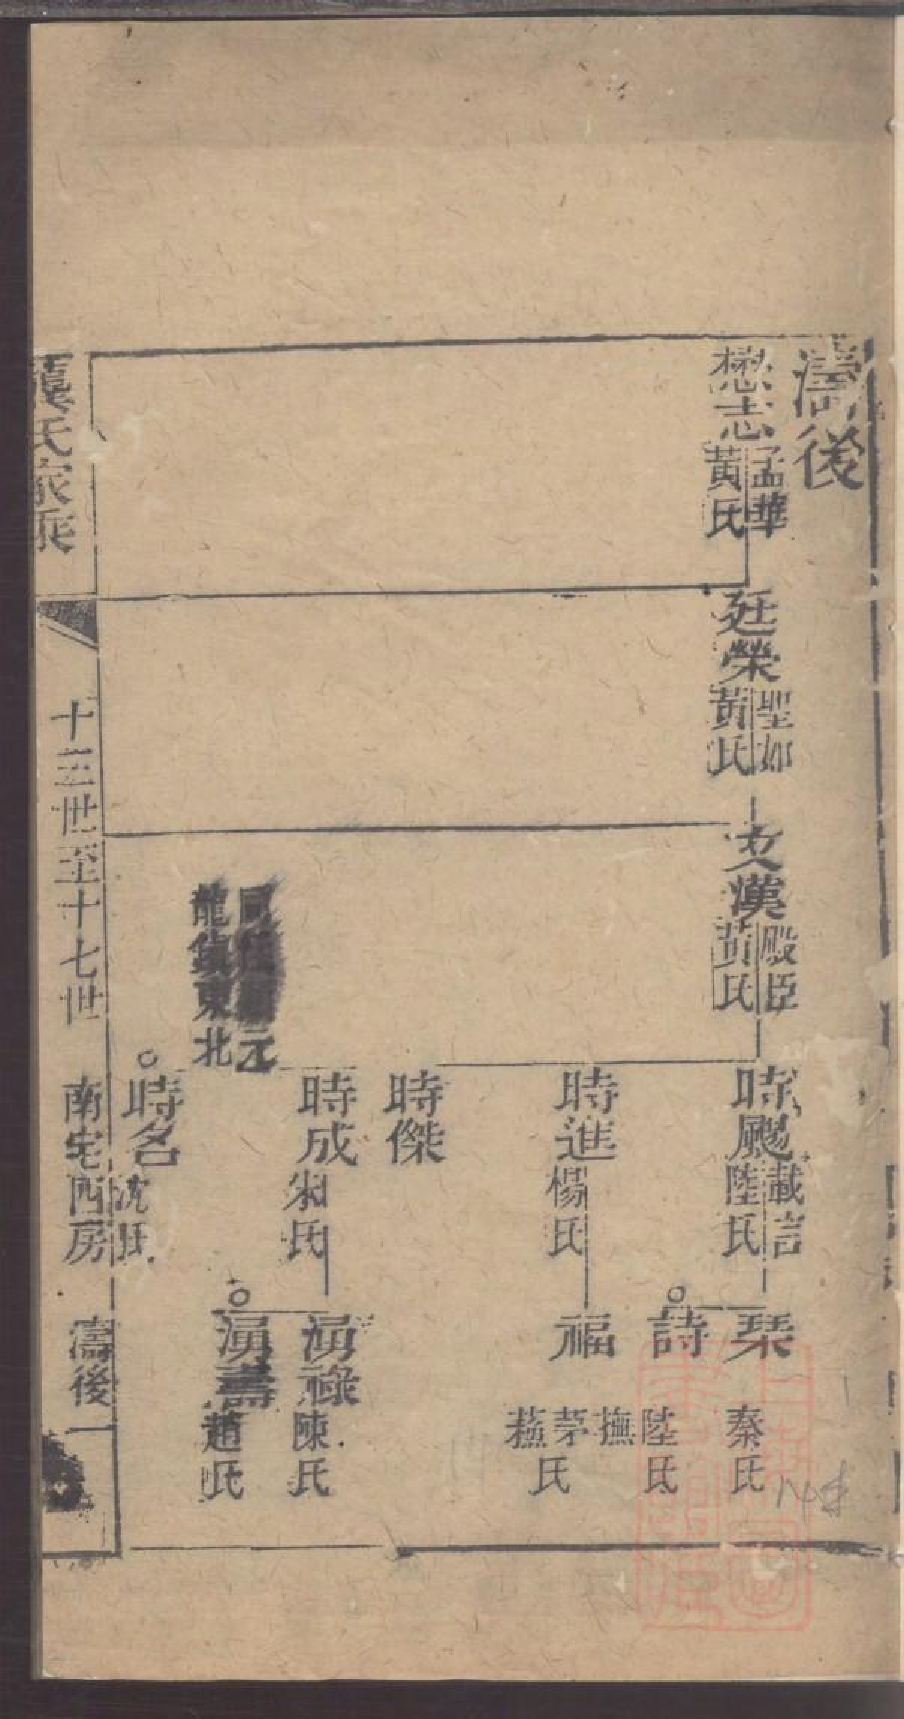 濤後
懋志
孟華
黃氏
廷榮
聖如
黃氏
文漢
殿臣
黃氏
時颺
載言
陸氏
時進
楊氏
時傑
時成
朱氏
元
龍鎮東北
時名
沈氏
琹
秦氏
詩
陸氏
福
撫
茅氏
蕪
湧祿
陳氏
湧壽
趙氏
龔氏家乘
十三世至十七世
南宅西房
濤後
一